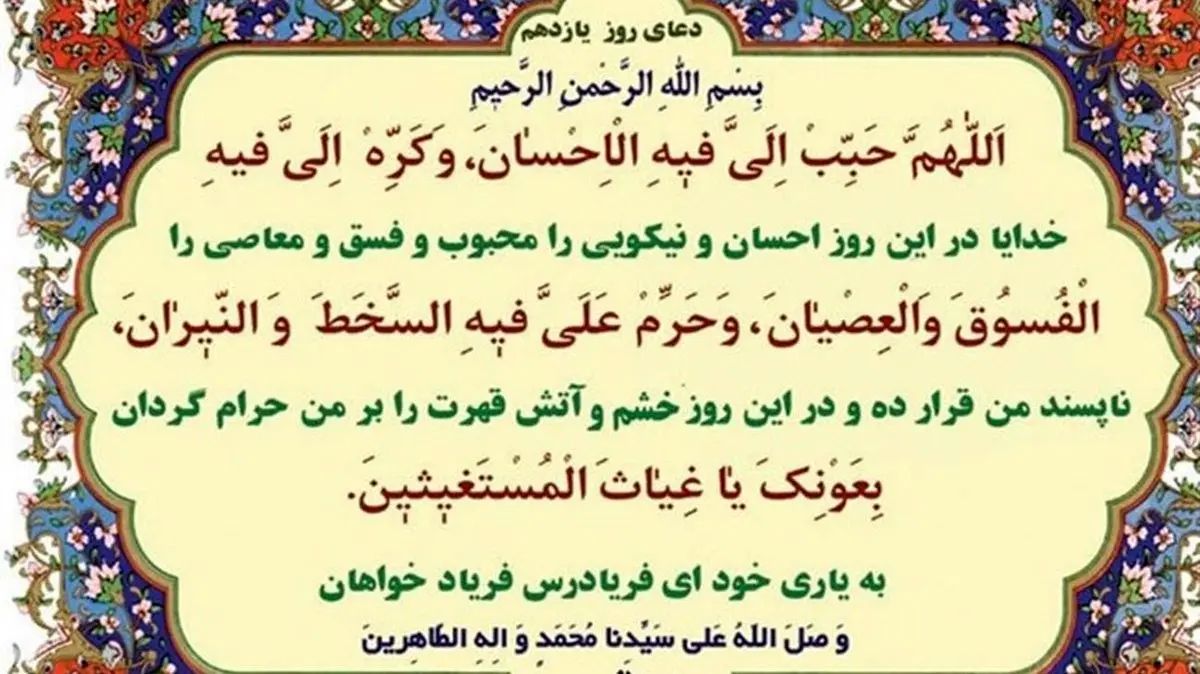 دعای روز یازدهم
بِسْمِ اللهِ الرَّحْمنِ الرَّحیمِ
اَللّٰهُمَّ حَبِّبْ اِلَیَّ فیهِ الْاِحْسٰانَ، وَ کَرِّهْ اِلَیَّ فیهِ
خدایا در این روز احسان و نیکویی را محبوب و فسق و معاصی را
الْفُسوُقَ وَالْعِصْیٰانَ، وَحَرِّمْ عَلَیَّ فیهِ السَّخَطَ وَ النّیرٰانَ،
ناپسند من قرار ده و در این روز خشم و آتش قهرت را بر من حرام گردان
بِعَوْنِکَ یٰا غِیٰاثَ الْمُسْتَغیثینَ.
به یاری خود ای فریادرس فریاد خواهان
وَ صَلَ اللّهُ عَلی سَیِّدِنا مُحَمَدٍ وَ الِهِ الطّاهِرینَ